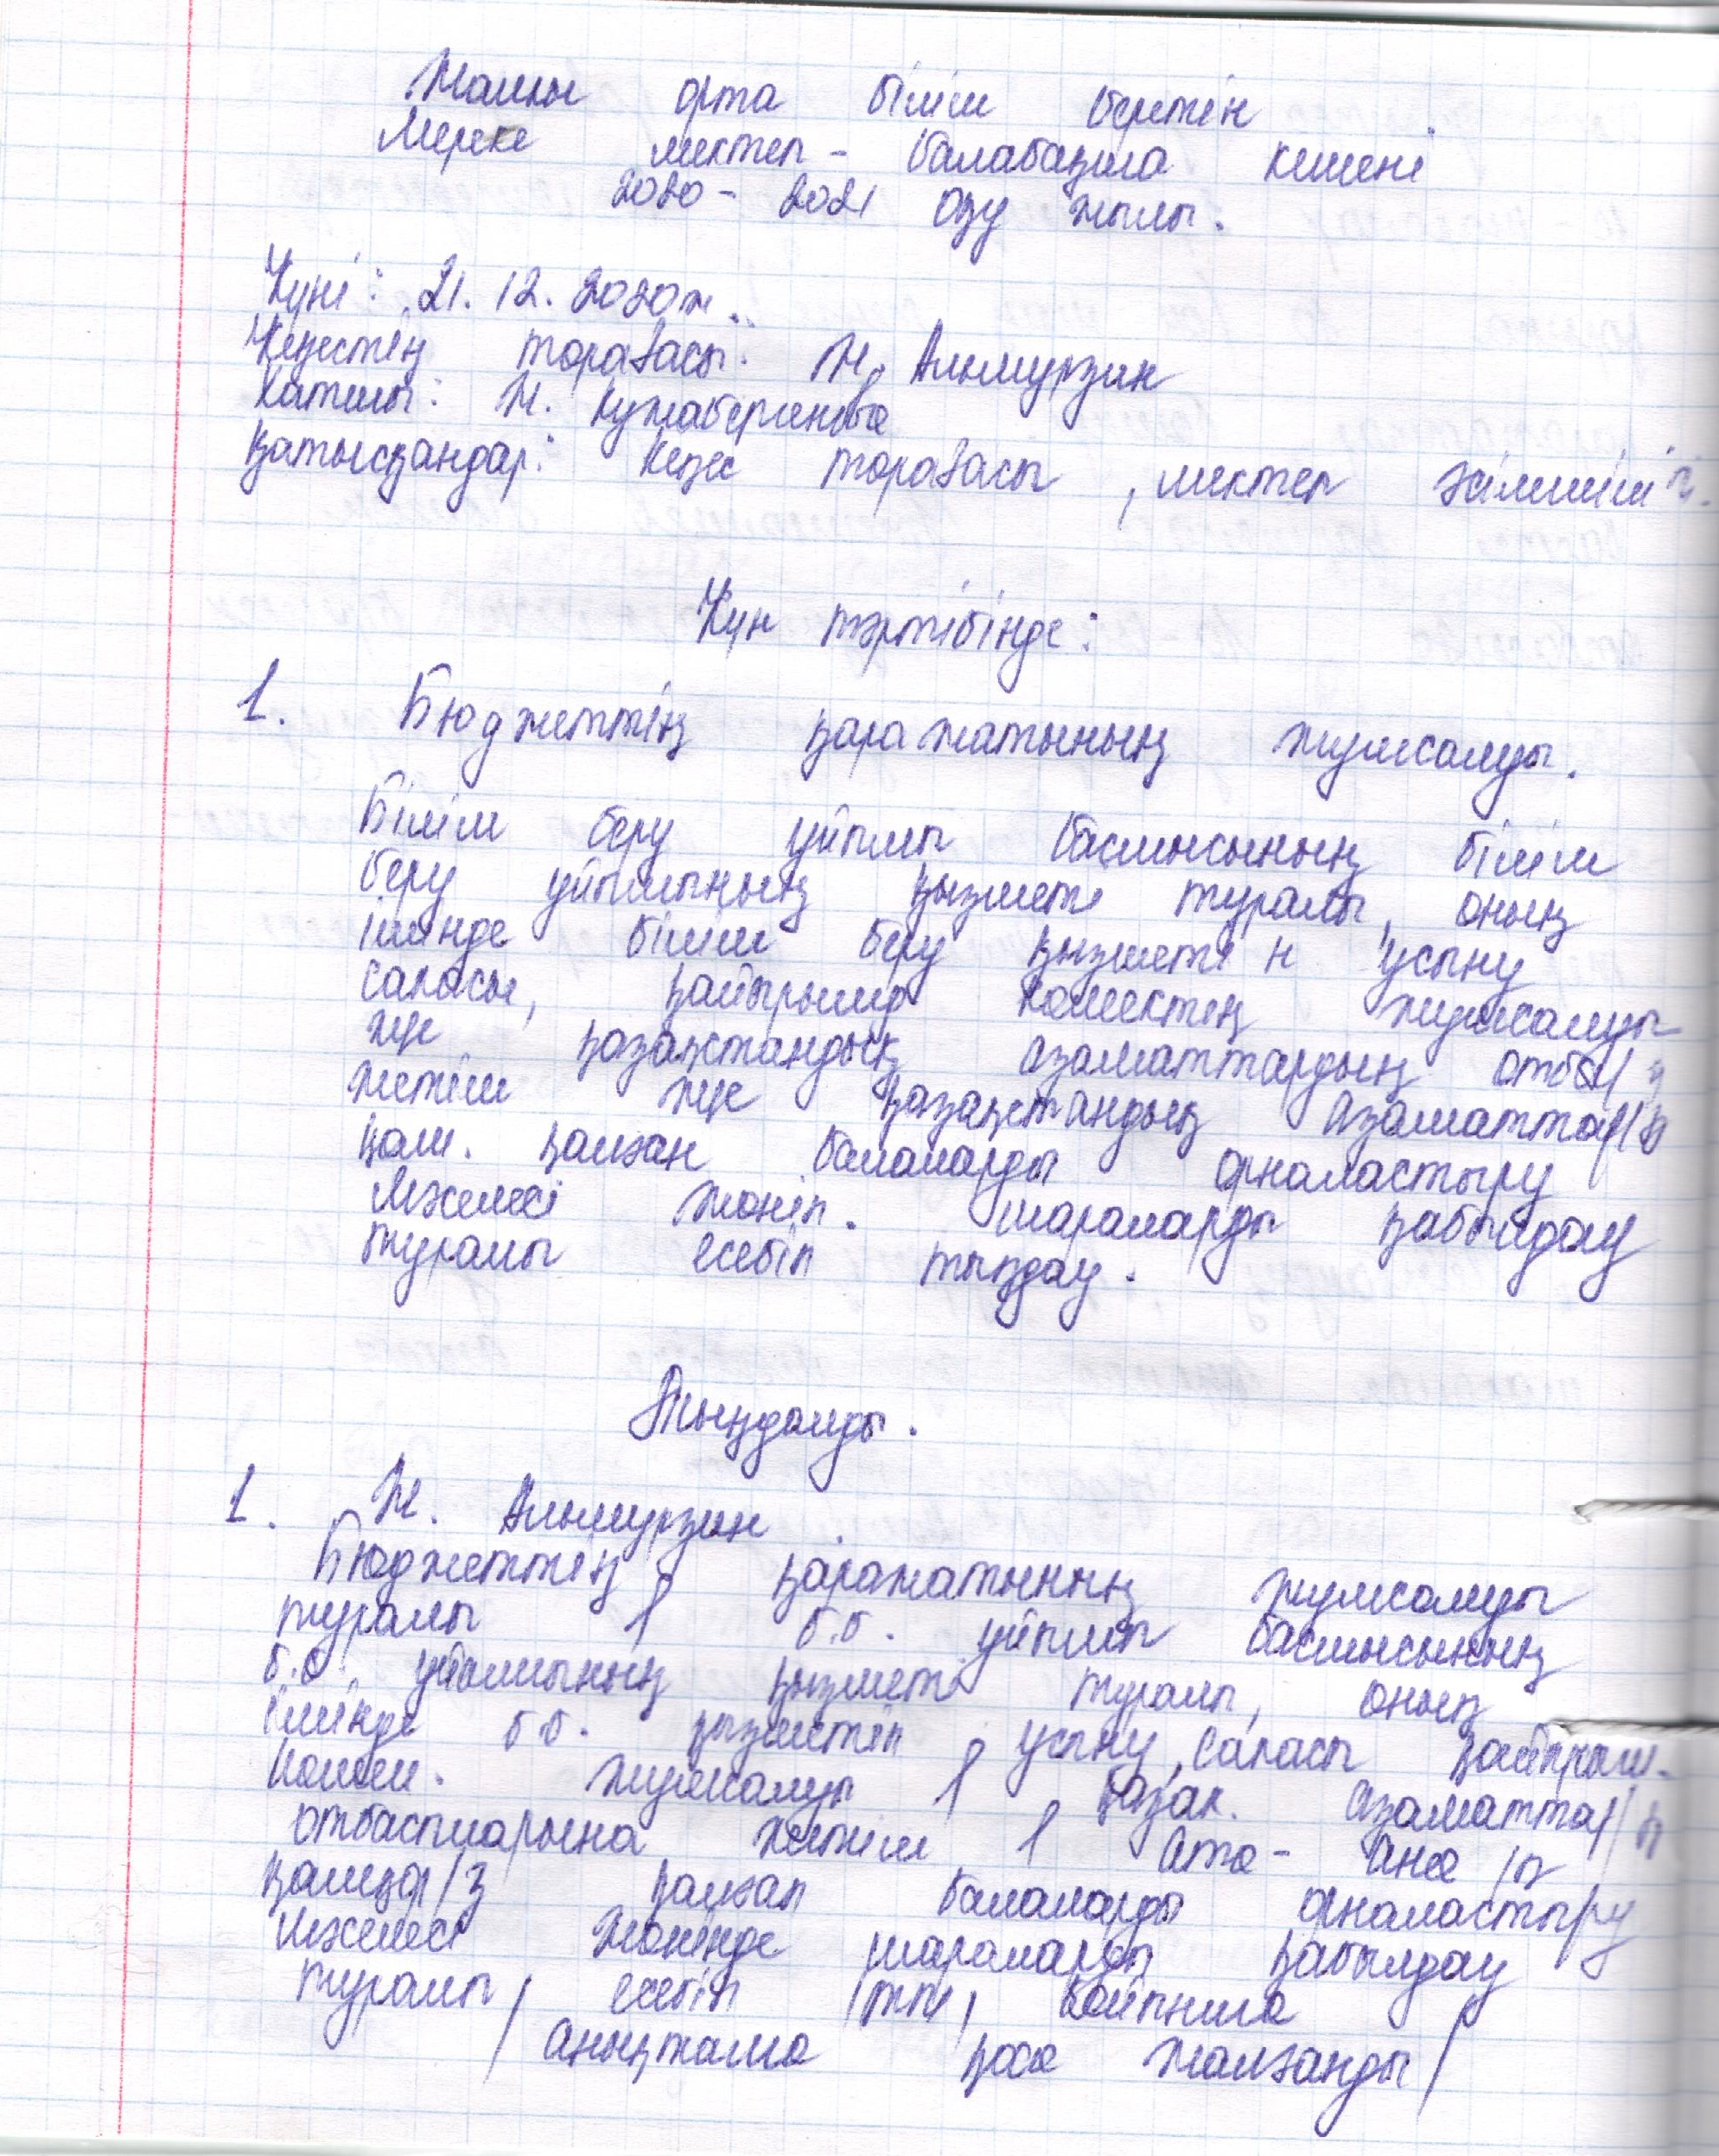 Жалпы орта білім беретін
Мереке мектеп - балабақша кешені
2020 - 2021 оқу жылы.
Күні: 21. 12. 2020ж.
Кеңестің төрағасы: Ж. Алимурзин
Хатшы: Ж. Кужабергенова
Қатысқандар: Кеңес төрағасы, мектеп әкімшілігі.
Күн тәртібінде:
1. Бюджеттің қаражатының жұмсалуы.
Білім беру ұйымы басшысының білім
беру ұйымының қызметі туралы, оның
ішінде білім беру қызметін ұсыну
сапасы, қайырымд көмектің жұмсалуы
және қазақстандық азаматтардың отбас/ғ
жетім және қазақстандық азаматтар/ң
қам. қалған балаларды орналастыру
мәселесі жөнін. шараларды қабылдау
туралы есебін тыңдау.
Тыңдалды.
1. Ж. Алимурзин
Бюджеттің қаражатының жұмсалуы
туралы / б.б. ұйымы басшысының
б.б. ұйымының қызметі туралы, оның
ішінде б.б. қызметін ұсыну, сапасы қайырым.
көмек. жұмсалуы / қазақ. азаматтар/ң
отбасыларына жетім / ата - ана /ң
қамқор/з қалған балаларды орналастыру
мәселесі жөнінде шараларды қабылдау
туралы / есебін баяннама
/ анықтама қоса жалғанды /